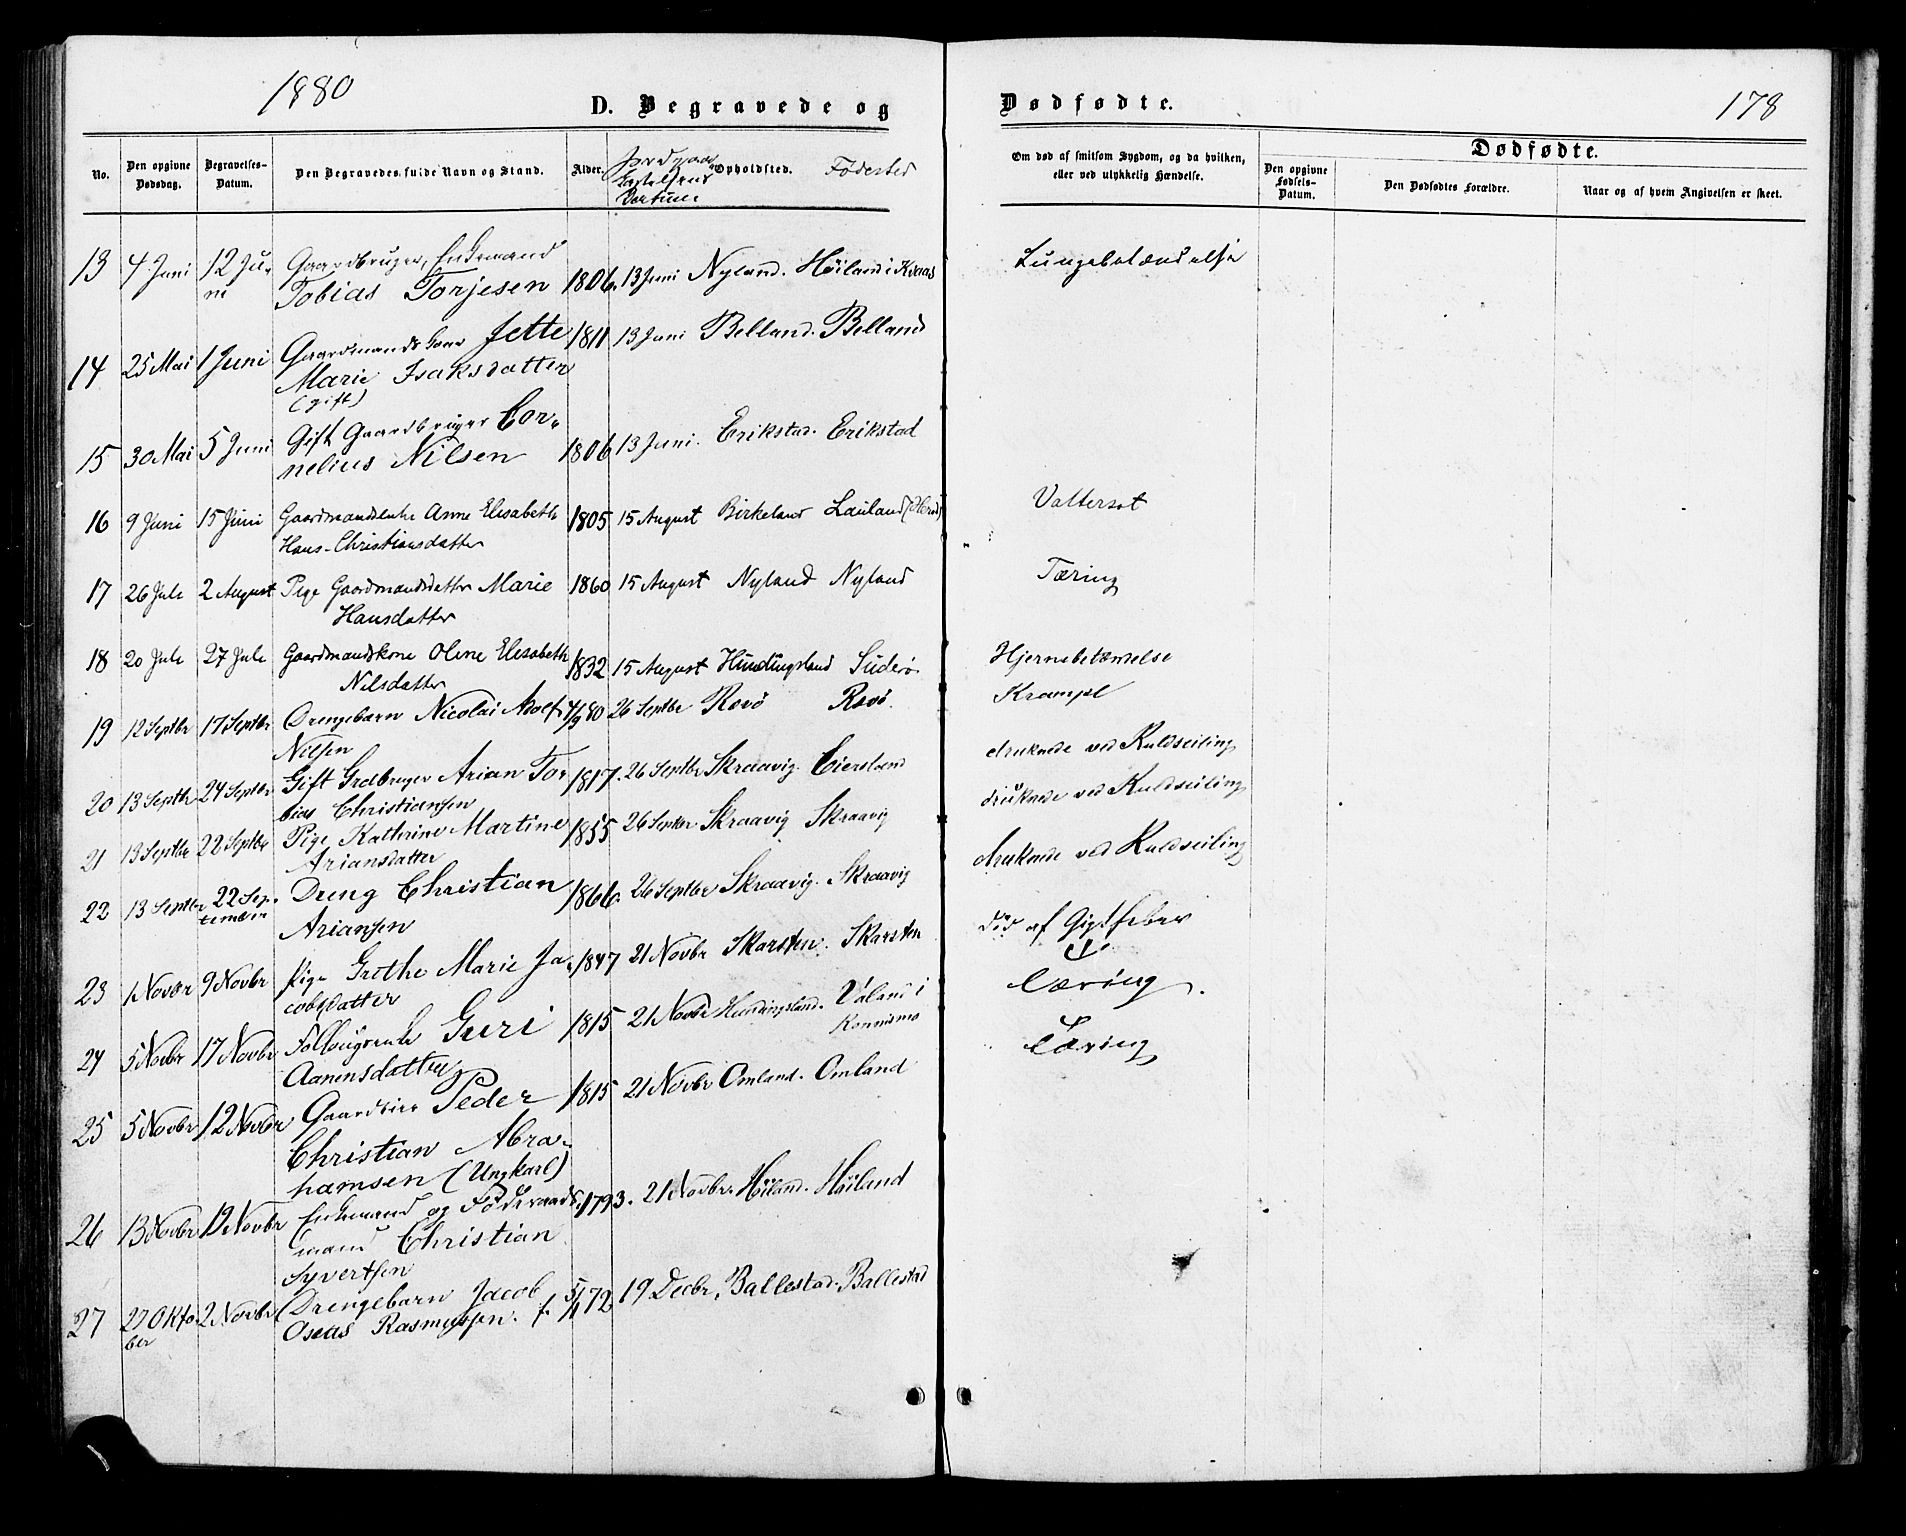 1880
D. Begravede og Dødfødte.
178
No.
Den opgivne Dødsdag.
Begravelses-Datum.
Den Begravedes fulde Navn og Stand.
Alder.
Jordpaa
Datum.
Opholdsted.
Fødested
Om død af smitsom Sygdom, og da hvilken, eller ved ulykkelig Hændelse.
Dødfødte.
Den opgivne Fødsels-Datum.
Den Dødfødtes Forældre.
Naar og af hvem Angivelsen er skeet.
13 4 Juni 12 Ju- Gaardbruger, Enkemand Lungebetændelse
ni Tobias Torjesen 1806. 13 Juni Nyland. Höiland i Kvaas
14 25 Mai 1 Juni Gaardmandskone Jette 1811 13 Juni Belland. Belland
Marie Isaksdatter
(gift)
15 30 Mai 5 Juni Gift Gaardbruger Cor-
nelius Nilsen 1806 13 Juni. Erikstad. Erikstad
16 9 Juni 15 Juni Gaardmandsenke Anne Elisabeth 1805 15 August Birkeland Lauland (Herad) Vattersot
Hans-Christiansdatter
17 26 Juli 2 August Pige Gaardmandsdatter Marie 1860 15 August Nyland Nyland Tæring
Hansdatter
18 20 Juli 27 Juli Gaardmandskone Oline Elisabeth 1832 15 August Hundingsland Suderø Hjernebetændelse
Nilsdatter
19 12 Septbr 17 Septbr Drengebarn Nicolai Adolf 4/9 80 26 Septbr Rosø Rosø. Krampe
Nilsen
20 13 Septbr 24 Septbr Gift Grdbruger Arian To- 1817. 26 Septbr Skraavig. Eiersland druknede ved Kuldseiling
bias Christiansen
21 13 Septbr 22 Septbr Pige Kathrine Martine 1855 26 Septbr Skraavig Skraavig druknede ved Kuldseiling
Ariansdatter
22 13 Septbr 22 Sep- Dreng Christian 1866. 26 Septbr Skraavig. Skraavig druknede ved Kuldseiling
tember Ariansen
23 1 Novbr 9 Novbr Pige Grethe Marie Ja- 1847 21 Novbr Skarsten. Skarsten død af Gigtfeber
cobsdatter
24 5 Novbr 17 Novbr Guri 1815 21 Novbr Hundingsland. Valand i Tæring.
Aanensdatter Konnismo
25 5 Novbr 12 Novbr Peder 1815 21 Novbr Omland. Omland Tæring
Christian Abra-
hamsen (Ungkarl)
26 13 Novbr 19 Novbr Enkemand og Føderaads- 1793. 21 Novbr. Höiland. Höiland
mand Christian
Syvertsen
27 27 Okto- 2 Novbr Drengebarn Jacob 5/1 72 19 Decbr. Ballestad. Ballestad
ber Oseas Rasmussen. f.